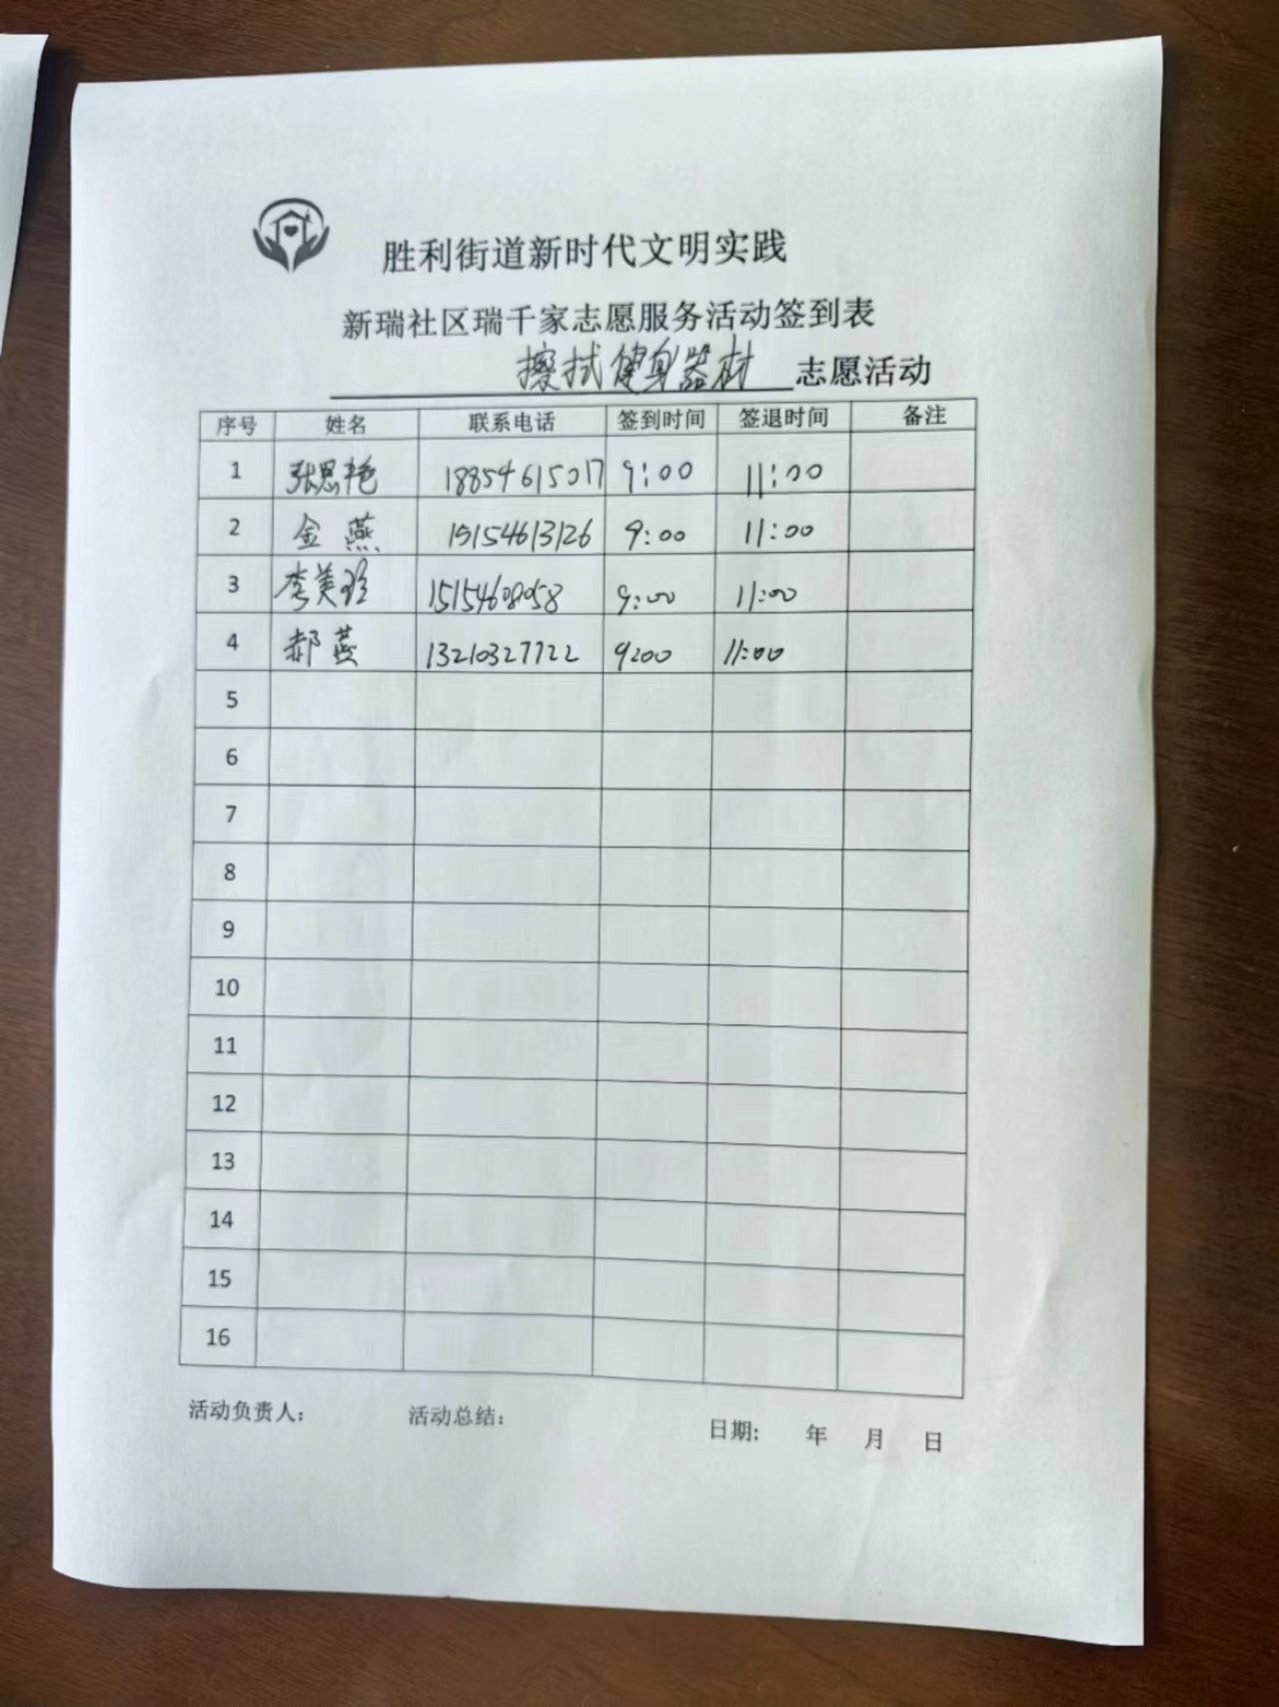 胜利街道新时代文明实践
新瑞社区瑞千家志愿服务活动签到表
擦拭健身器材 志愿活动
序号 姓名 联系电话 签到时间 签退时间 备注
1 张思艳 18854615017 9:00 11:00
2 金燕 15154613126 9:00 11:00
3 李美玲 15154608058 9:00 11:00
4 郝燕 13210327722 9:00 11:00
5
6
7
8
9
10
11
12
13
14
15
16
活动负责人: 活动总结: 日期: 年 月 日